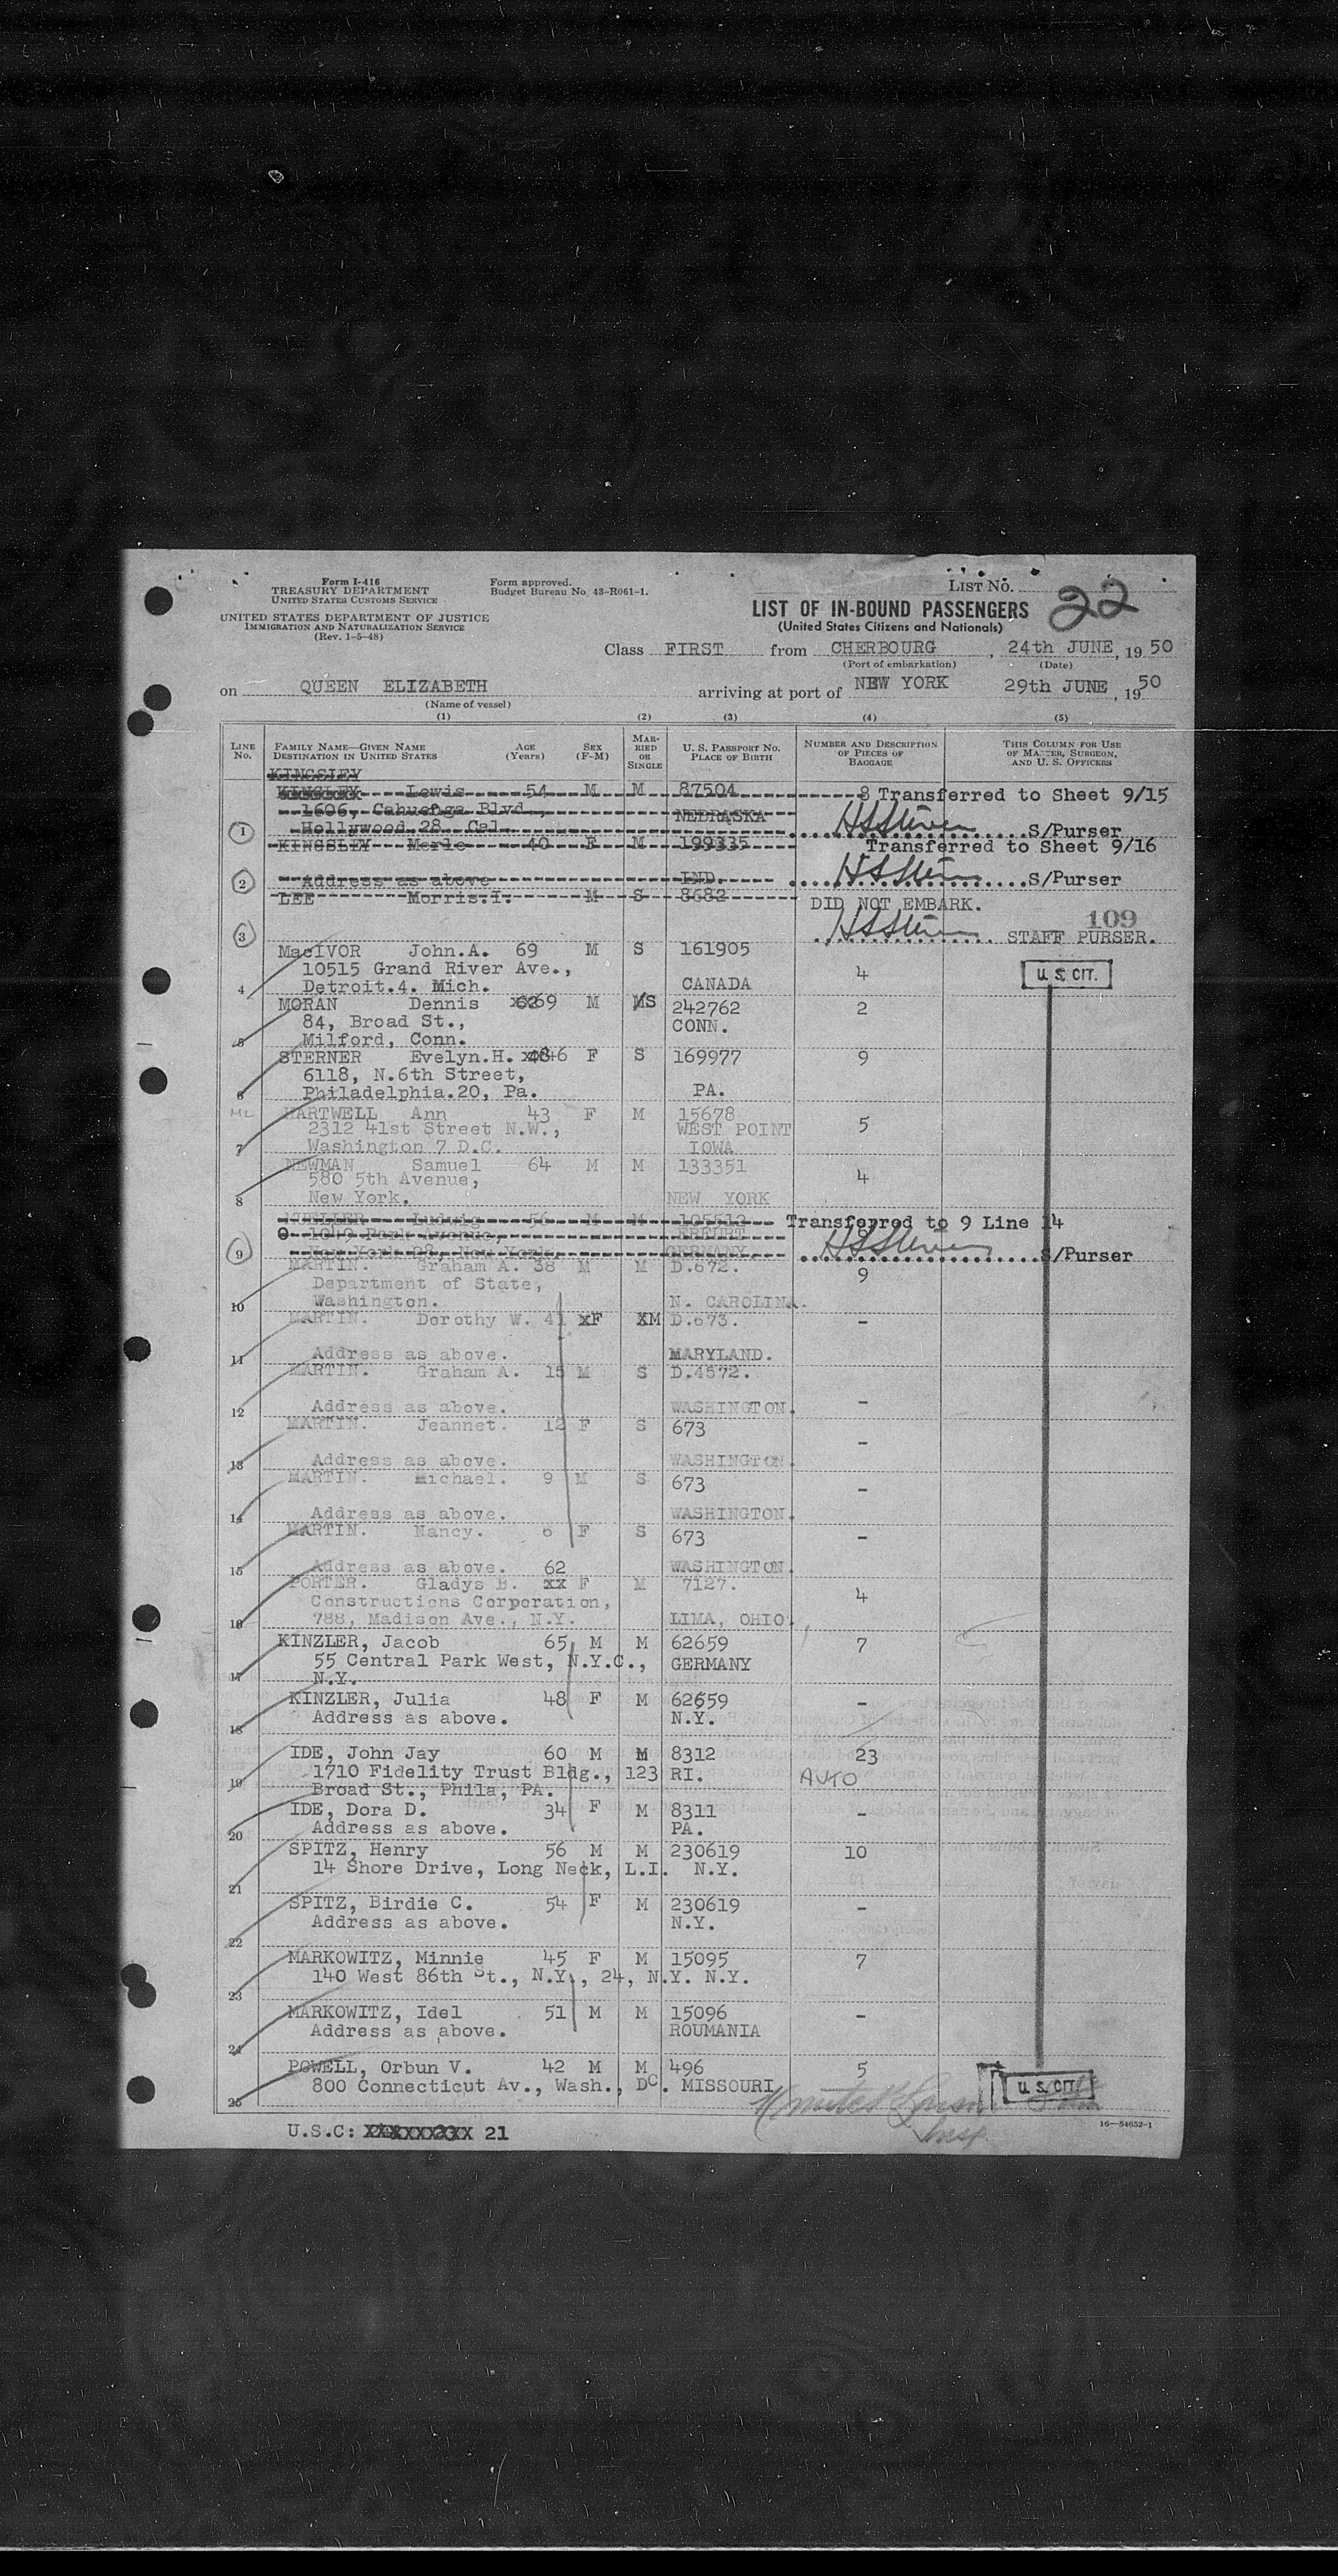 Form I-416
TREASURY DEPARTMENT
UNITED STATES CUSTOMS SERVICE
UNITED STATES DEPARTMENT OF JUSTICE
IMMIGRATION AND NATURALIZATION SERVICE
(Rev. 1-5-48)
Form approved.
Budget Bureau No. 43-R061-1.
LIST NO.
22
LIST OF IN-BOUND PASSENGERS
(United States Citizens and Nationals)
Class FIRST from CHERBOURG, 24th JUNE, 1950
(Port of embarkation) (Date)
on QUEEN ELIZABETH arriving at port of NEW YORK 29th JUNE, 1950
(Name of vessel)
(1) (2) (3) (4) (5)
LINE NO.
FAMILY NAME—GIVEN NAME
DESTINATION IN UNITED STATES
AGE (Years)
SEX (F-M)
MARRIED OR SINGLE
U. S. PASSPORT NO.
PLACE OF BIRTH
NUMBER AND DESCRIPTION OF PIECES OF BAGGAGE
THIS COLUMN FOR USE OF MASTER, SURGEON, AND U. S. OFFICERS
KINGSLEY
Lewis 54 M M 87504 8 Transferred to Sheet 9/15
1606, Cahuenga Blvd., NEBRASKA
1 Hollywood 28. Cal. S/Purser
KINGSLEY Merle 40 F M 199335 Transferred to Sheet 9/16
2 Address as above IND. S/Purser
LEE Morris.I. M S 8682 DID NOT EMBARK.
109
3 STAFF PURSER.
MacIVOR John.A. 69 M S 161905
10515 Grand River Ave., 4 U. S. CIT.
4 Detroit.4. Mich. CANADA
MORAN Dennis 69 M S 242762 2
84, Broad St., CONN.
5 Milford, Conn.
STERNER Evelyn.H. 46 F S 169977 9
6118, N.6th Street,
6 Philadelphia.20, Pa. PA.
HARTWELL Ann 43 F M 15678
2312 41st Street N.W., WEST POINT 5
7 Washington 7 D.C. IOWA
NEWMAN Samuel 64 M M 133351
580 5th Avenue, 4
8 New York. NEW YORK
Ludwig 56 M M 105512 Transferred to 9 Line 14
Park Avenue, ERFURT
9 New York 28, New York. GERMANY. S/Purser
MARTIN. Graham A. 38 M M D.672. 9
Department of State,
10 Washington. N. CAROLINA.
MARTIN. Dorothy W. 41 xF XM D.673. -
11 Address as above. MARYLAND.
MARTIN. Graham A. 15 M S D.4572.
12 Address as above. WASHINGTON. -
MARTIN. Jeannet. 12 F S 673 -
13 Address as above. WASHINGTON.
MARTIN. Michael. 9 M S 673 -
14 Address as above. WASHINGTON.
MARTIN. Nancy. 6 F S 673 -
15 Address as above. 62 WASHINGTON.
PORTER. Gladys B. xx F M 7127.
Constructions Corporation, 4
16 788, Madison Ave., N.Y. LIMA, OHIO.
KINZLER, Jacob 65 M M 62659 7
55 Central Park West, N.Y.C., GERMANY
17 N.Y.
KINZLER, Julia 48 F M 62659 -
18 Address as above. N.Y.
IDE, John Jay 60 M M 8312 23
1710 Fidelity Trust Bldg., 123 RI. AUTO
19 Broad St., Phila, PA.
IDE, Dora D. 34 F M 8311 -
20 Address as above. PA.
SPITZ, Henry 56 M M 230619 10
14 Shore Drive, Long Neck, L.I. N.Y.
21
SPITZ, Birdie C. 54 F M 230619 -
Address as above. N.Y.
22
MARKOWITZ, Minnie 45 F M 15095 7
140 West 86th St., N.Y., 24, N.Y. N.Y.
23
MARKOWITZ, Idel 51 M M 15096 -
24 Address as above. ROUMANIA
POWELL, Orbun V. 42 M M 496 5
800 Connecticut Av., Wash., DC. MISSOURI U. S. CIT.
25
Insp.
16—54652-1
U.S.C: 21